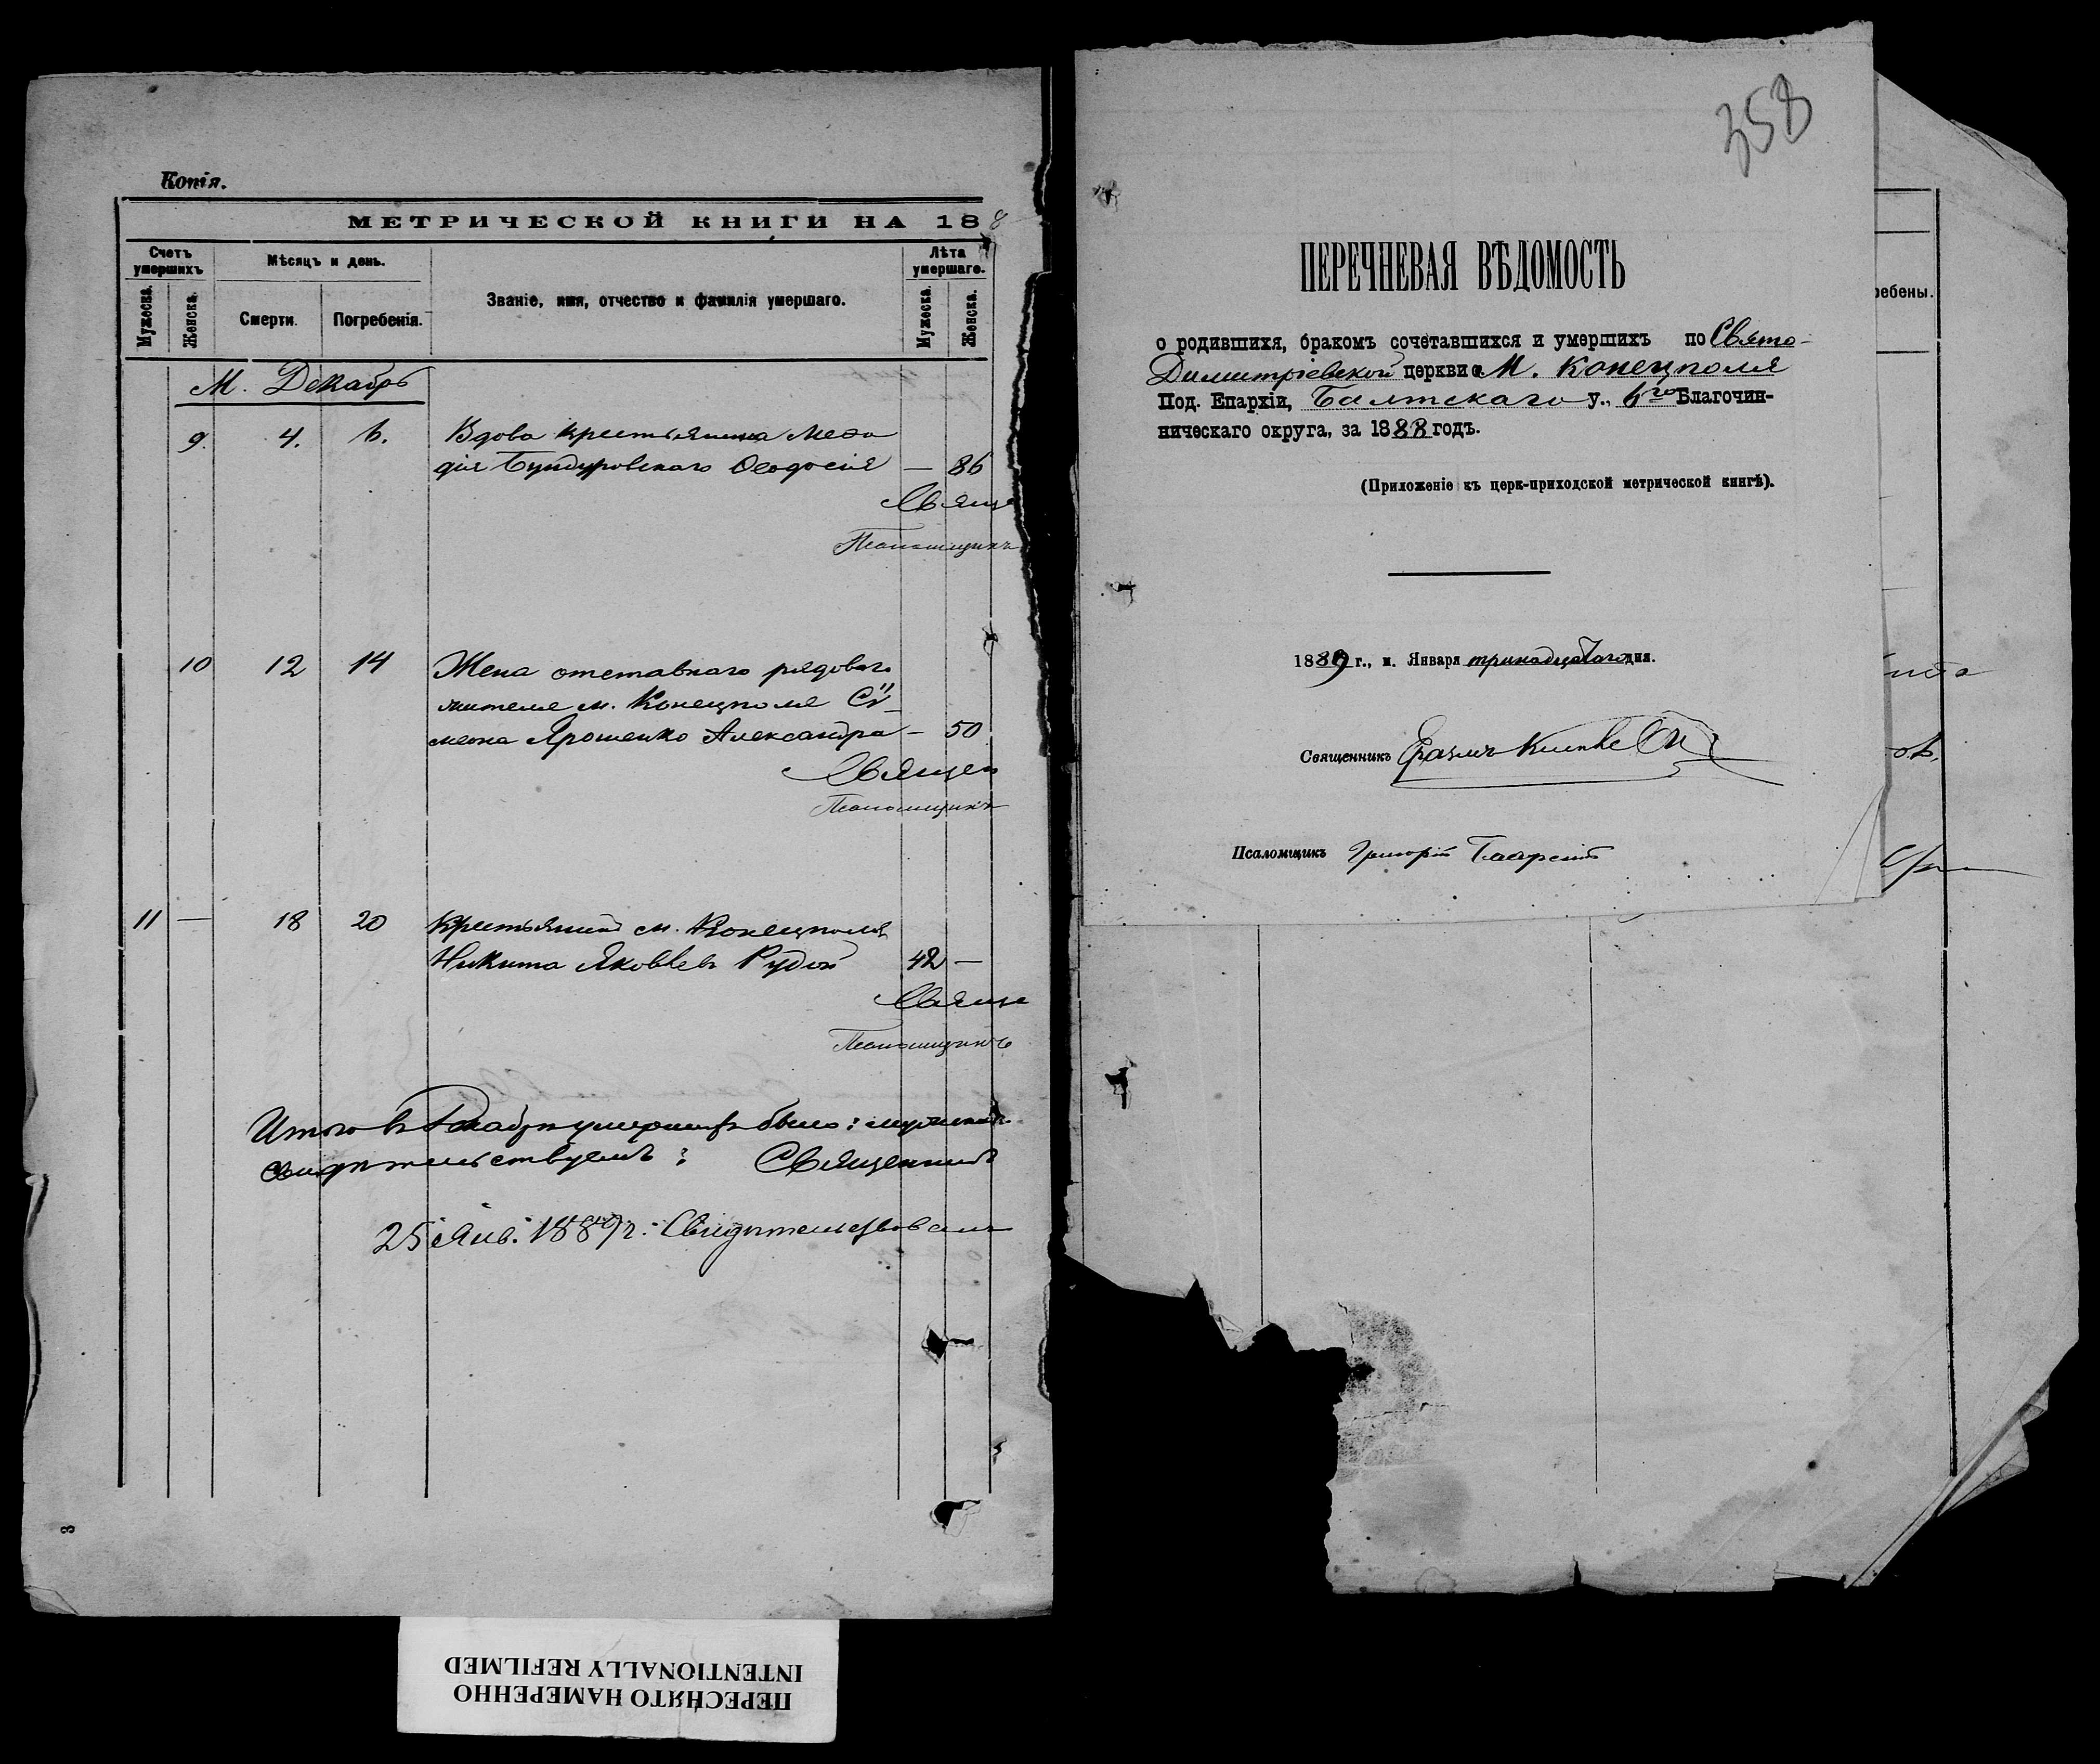 Копія.
МЕТРИЧЕСКОЙ КНИГИ НА 188
Счетъ умершихъ
Мѣсяцъ и день.
Званіе, имя, отчество и фамилія умершаго.
Лѣта умершаго.
Мужеска.
Женска.
Смерти.
Погребенія.
Мужеска.
Женска.
М. Декабрь
9. 4. 6. Вдова крестьянина Мефо
дія Бундуровскаго Ѳеодосія — 86
Свяще
Псаломщикъ
10 12 14 Жена отставнаго рядоваго
жителя м. Конецполя Си
меона Ярошенко Александра — 50
Священ
Псаломщикъ
11 — 18 20 Крестьянинъ м. Конецполя
Никита Яковлевъ Рудой 42 —
Свяще
Псаломщикъ
Итого въ Декабрѣ умершихъ было: мужеска
свидѣтельствуемъ: Священникъ
25 Янв. 1889 г. Свидѣтельствовалъ
3
ПЕРЕСНЯТО НАМЕРЕННО
INTENTIONALLY REFILMED
358
ПЕРЕЧНЕВАЯ ВѢДОМОСТЬ
о родившихся, бракомъ сочетавшихся и умершихъ по Свято-
Димитріевской церкви М. Конецполя
Под. Епархіи, Балтскаго у., 6го Благочин-
ническаго округа, за 1888 годъ.
(Приложеніе къ церк-приходской метрической книгѣ).
1889 г., м. Января тринадцатаго дня.
Священникъ Еразмъ
Псаломщикъ Григорій
ребены.